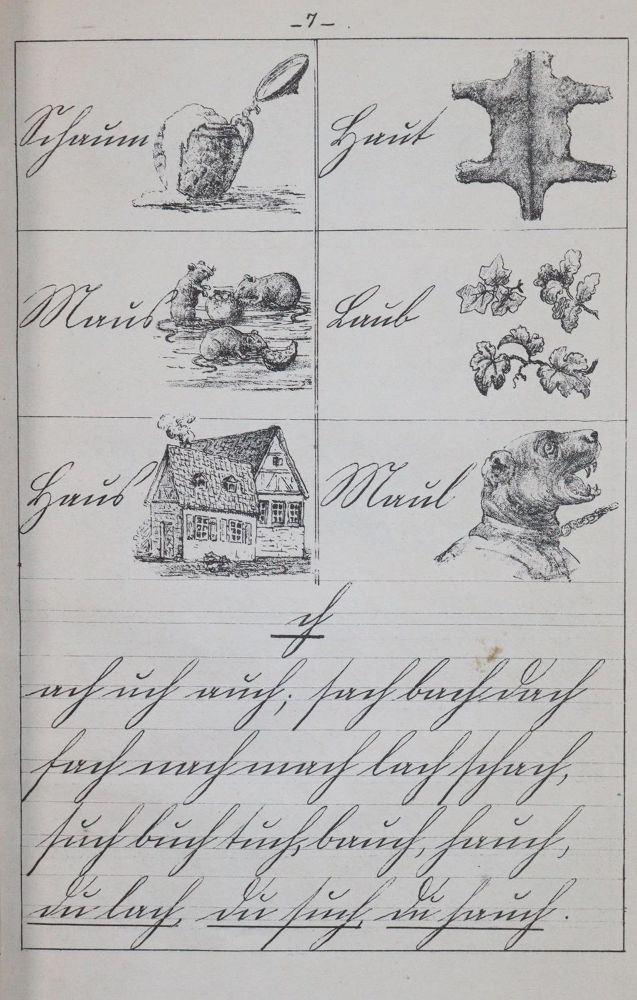 – 7 – .
Schaum
Haut
Maus
Laub
Haus
Maul
ch
ach uch auch; sach bach dach
fach nach mach lach schach,
such buch tuch, bauch, hauch,
du lach, du such, du hauch.